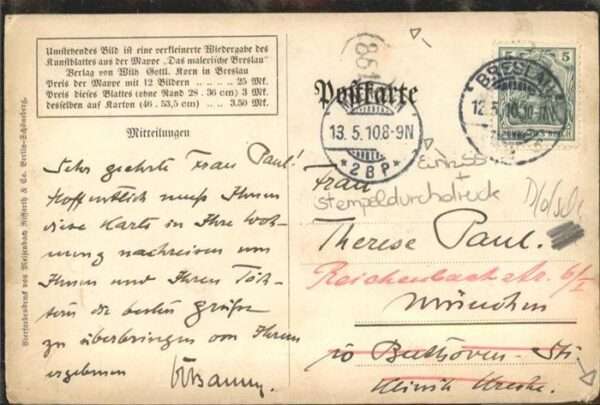 Umstehendes Bild ist eine verkleinerte Wiedergabe des
Kunstblattes aus der Mappe „Das malerische Breslau"
Verlag von Wilh. Gottl. Korn in Breslau
Preis der Mappe mit 12 Bildern . . . . . 25 Mk.
Preis dieses Blattes (ohne Rand 28 . 36 cm) 3 Mk.
desselben auf Karton (46 . 53,5 cm) . . 3.50 Mk.
Mitteilungen
Sehr geehrte Frau Paul!
Hoffentlich muss Ihnen
diese Karte in Ihre Woh-
nung nachreisen um
Ihnen und Ihren Töch-
die besten Grüße
zu überbringen von Ihrem
ergebenen
Vierfarbendruck von Meisenbach Riffarth & Co. Berlin-Schöneberg.
Postkarte
13.5.10 8-9N
* 2 B P *
BRESLAU
12.5.10
5
DEUTSCHES REICH
Stempeldurchdruck
Frau
Therese Paul.
Reichenbachstr. 6/I
München
Beethoven-Str